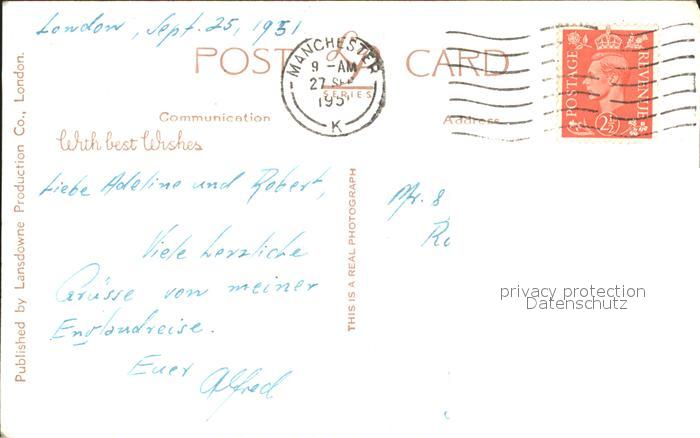 London, Sept. 25, 1951
POST CARD
LP
SERIES
MANCHESTER
9 - AM
27 SEP
1951
K
POSTAGE REVENUE
2½
Communication
Address
With best Wishes
Liebe Adeline und Robert,
Viele herzliche
Grüsse von meiner
Englandreise.
Euer
Alfred
Mr. &
Published by Lansdowne Production Co., London.
THIS IS A REAL PHOTOGRAPH
privacy protection
Datenschutz